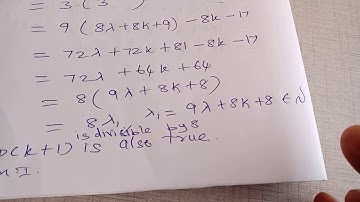 = 3. (3
= 9 ( 8λ+8k+9) - 8k - 17
= 72λ +72k + 81 - 8k - 17
= 72λ + 64k + 64
= 8( 9λ + 8k+8)
= 8λ₁, λ₁ = 9λ+8k+8 ∈ N
is divisible by 8
(k+1) is also true.